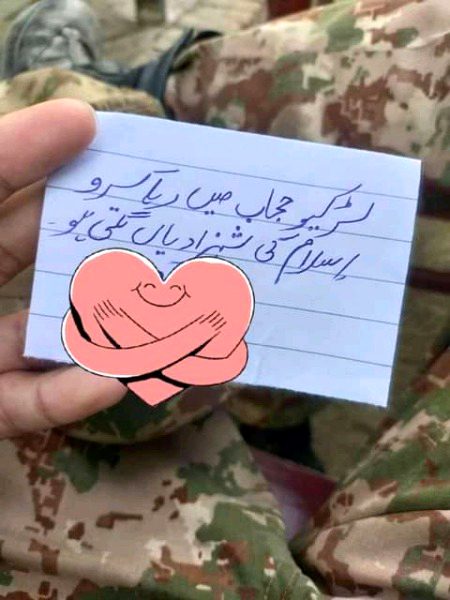 لڑکیو حجاب میں رہا کرو
اسلام کی شہزادیاں لگتی ہو۔